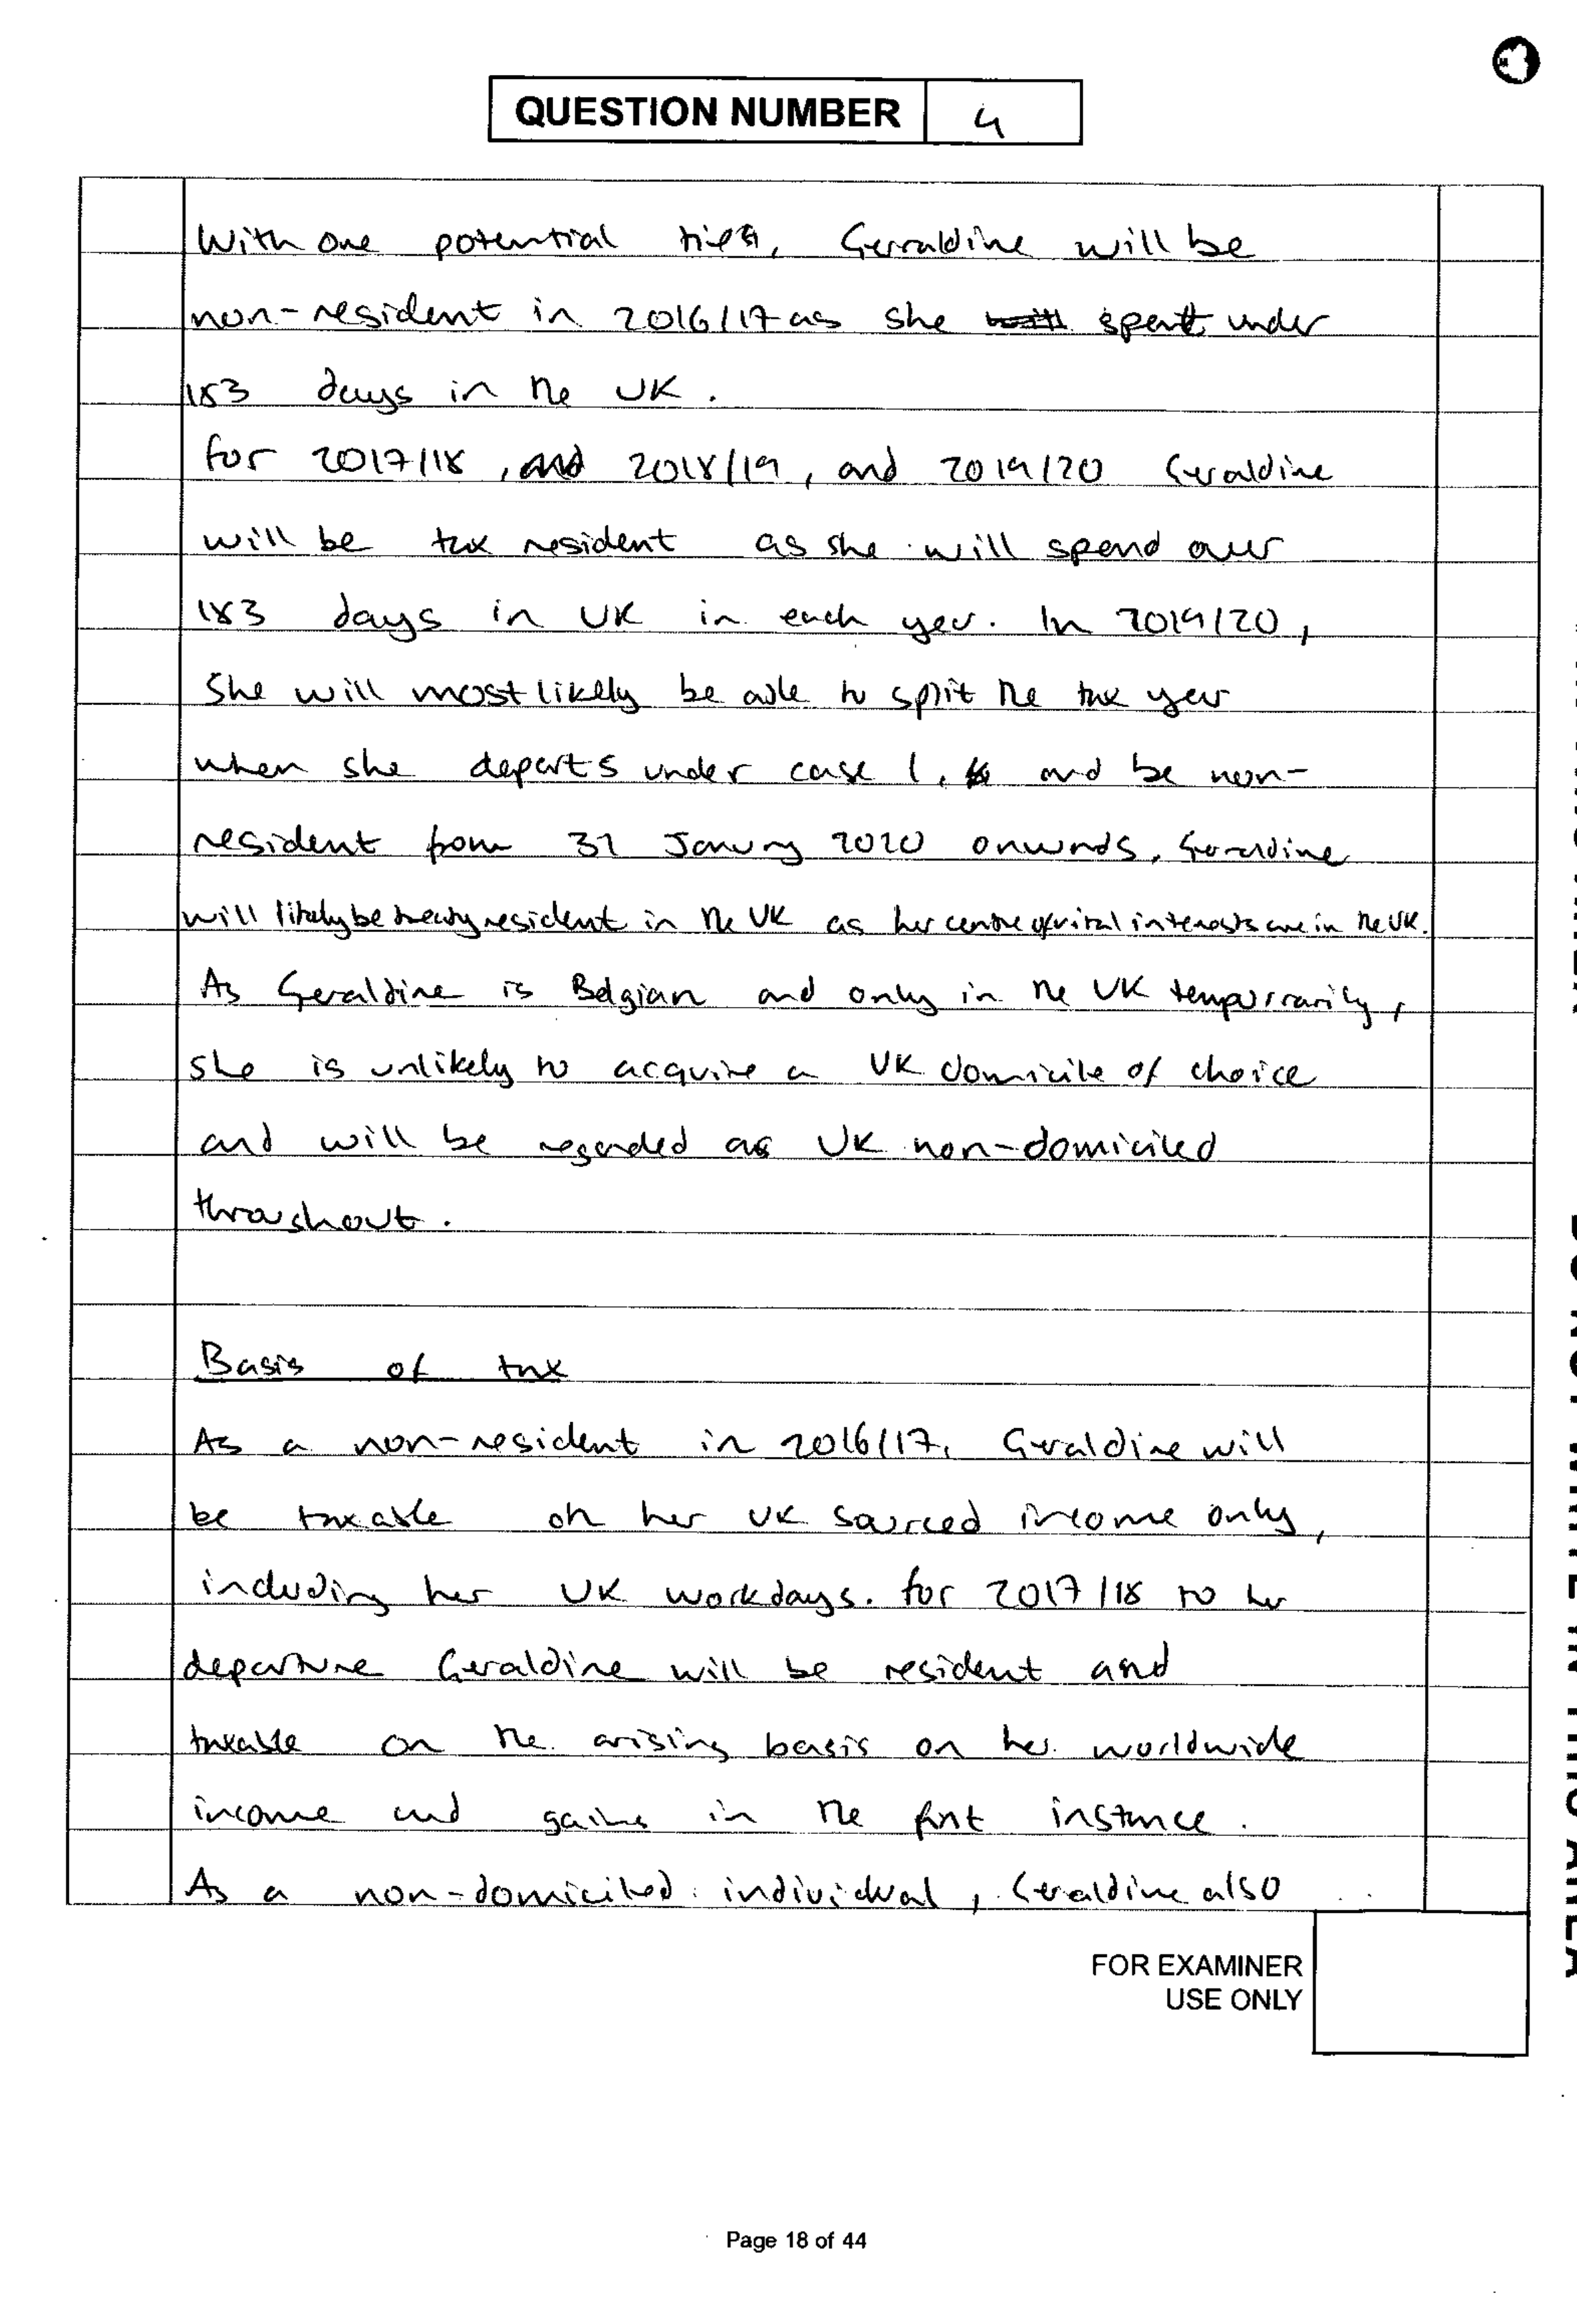 QUESTION NUMBER 4
With one potential ties, Gerraldine will be
non-resident in 2016/17 as she spent under
183 days in the UK.
for 2017/18, and 2018/19, and 2019/20 Geraldine
will be tax resident as she will spend over
183 days in UK in each year. In 2019/20,
She will most likely be able to split the tax year
when she departs under case 1, and be non-
resident from 31 January 2020 onwards. Geraldine
will likely be treaty resident in the UK as her centre of vital interests are in the UK.
As Geraldine is Belgian and only in the UK temporrarily,
she is unlikely to acquire a UK domicile of choice
and will be regarded as UK non-domiciled
throughout.
Basis of tax
As a non-resident in 2016/17, Geraldine will
be taxable on her UK sourced income only,
including her UK workdays. for 2017/18 to her
departure Geraldine will be resident and
taxable on the arising basis on her worldwide
income and gains in the first instance.
As a non-domiciled individual, Geraldine also
FOR EXAMINER
USE ONLY
Page 18 of 44